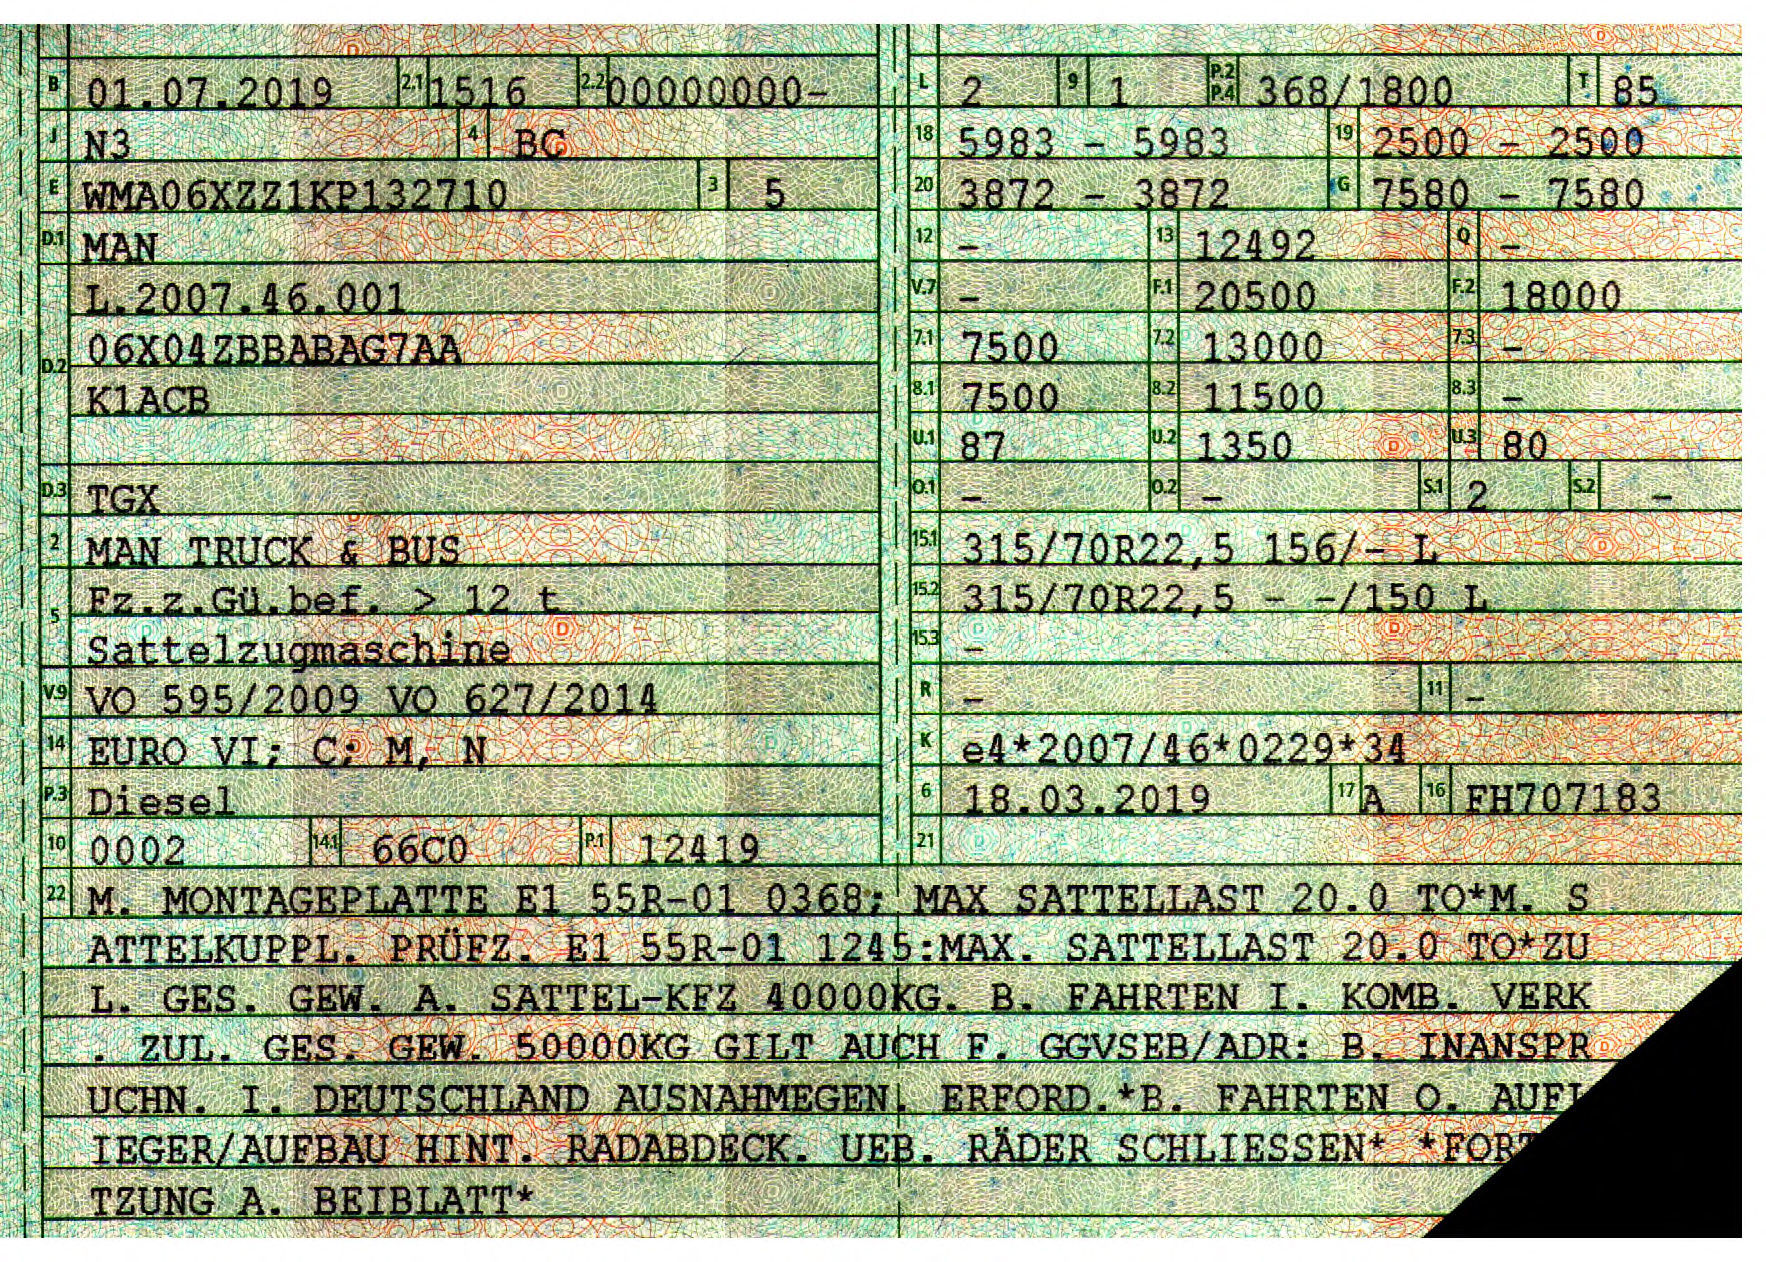 B 01.07.2019 2.1 1516 2.2 00000000-
J N3 4 BC
E WMA06XZZ1KP132710 3 5
D.1 MAN
L.2007.46.001
D.2 06X04ZBBABAG7AA
K1ACB
D.3 TGX
2 MAN TRUCK & BUS
5 Fz.z.Gü.bef. > 12 t
Sattelzugmaschine
V.9 VO 595/2009 VO 627/2014
14 EURO VI; C; M, N
P.3 Diesel
10 0002 14.1 66C0 P.1 12419
L 2 9 1 P.2 P.4 368/1800 T 85
18 5983 - 5983 19 2500 - 2500
20 3872 - 3872 G 7580 - 7580
12 - 13 12492 Q -
V.7 - F.1 20500 F.2 18000
7.1 7500 7.2 13000 7.3 -
8.1 7500 8.2 11500 8.3 -
U.1 87 U.2 1350 U.3 80
O.1 - O.2 - S.1 2 S.2 -
15.1 315/70R22,5 156/- L
15.2 315/70R22,5 - -/150 L
15.3 -
R - 11 -
K e4*2007/46*0229*34
6 18.03.2019 17 A 16 FH707183
21
22 M. MONTAGEPLATTE E1 55R-01 0368; MAX SATTELLAST 20.0 TO*M. S
ATTELKUPPL. PRÜFZ. E1 55R-01 1245:MAX. SATTELLAST 20.0 TO*ZU
L. GES. GEW. A. SATTEL-KFZ 40000KG. B. FAHRTEN I. KOMB. VERK
. ZUL. GES. GEW. 50000KG GILT AUCH F. GGVSEB/ADR: B. INANSPR
UCHN. I. DEUTSCHLAND AUSNAHMEGEN. ERFORD.*B. FAHRTEN O. AUFL
IEGER/AUFBAU HINT. RADABDECK. UEB. RÄDER SCHLIESSEN* *FORT
TZUNG A. BEIBLATT*